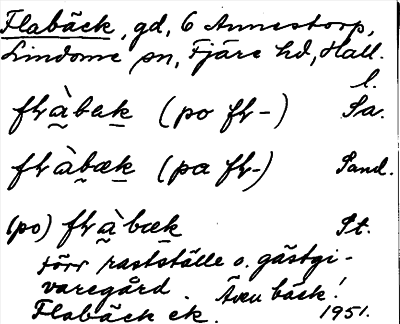 Flabäck, gd, 6 Annestorp,
Lindome sn, Fjäre hd, Hall.
l.
(po fl-) Sa.
(pa fl-) Sand.
(po) St.
förr rastställe o. gästgi-
varegård. Även bäck!
Flabäck ek. 1951.